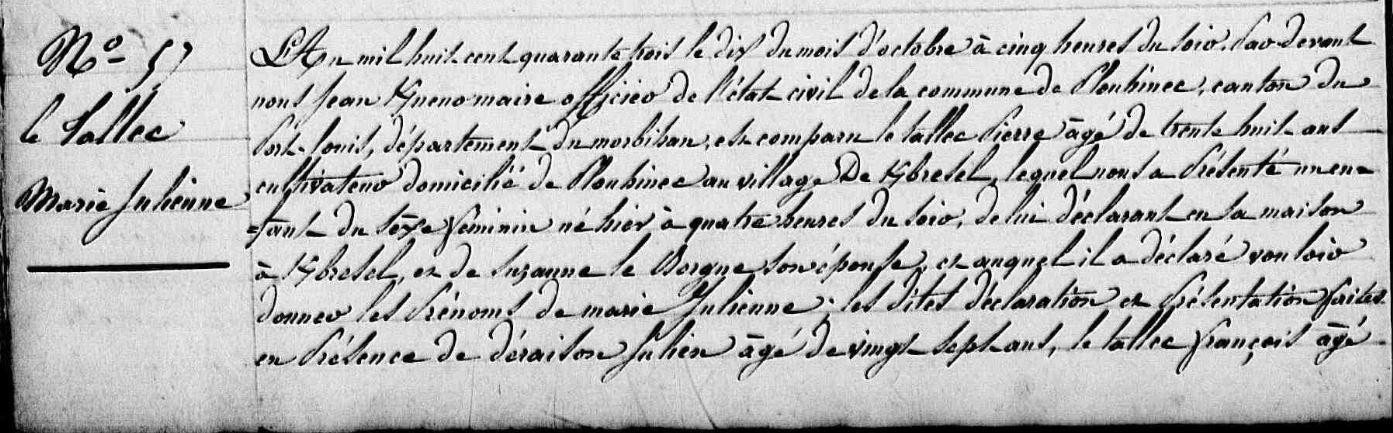 N° 57
le Tallec
Marie Julienne
L'An mil huit cent quarante trois le dix du mois d'octobre à cinq heures du soir. Par devant
nous Jean Kgueno maire officier de l'état civil de la commune de Plouhinec, canton du
Port-Louis, département du morbihan, est comparu le tallec Pierre âgé de trente huit ans
cultivateur domicilié de Plouhinec au village De Kbresel, lequel nous a Présenté un en=
=fant du sexe féminin né hier à quatre heures du soir, de lui déclarant en sa maison
à Kbresel, et de Suzanne le Borgne son épouse, et auquel il a déclaré vouloir
donner les Prénoms de marie Julienne; les dites déclaration et Présentation faites
en Présence de déraison Julien âgé de vingt sept ans, le tallec françois âgé